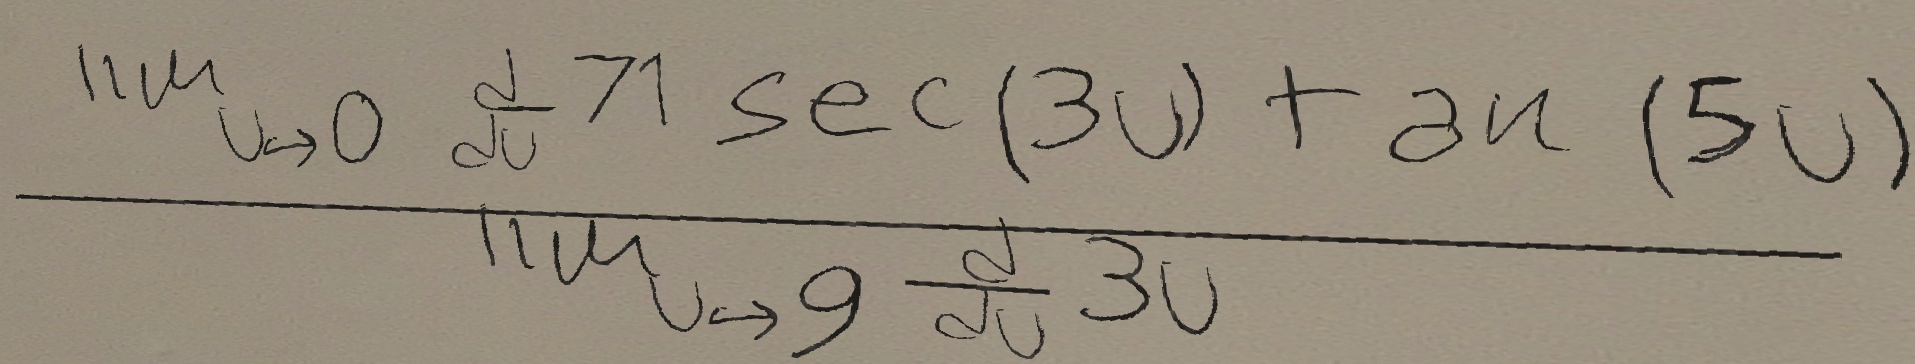 lim u→0 d/du 71 sec(3u) + an (5u)
lim u→9 d/du 3u